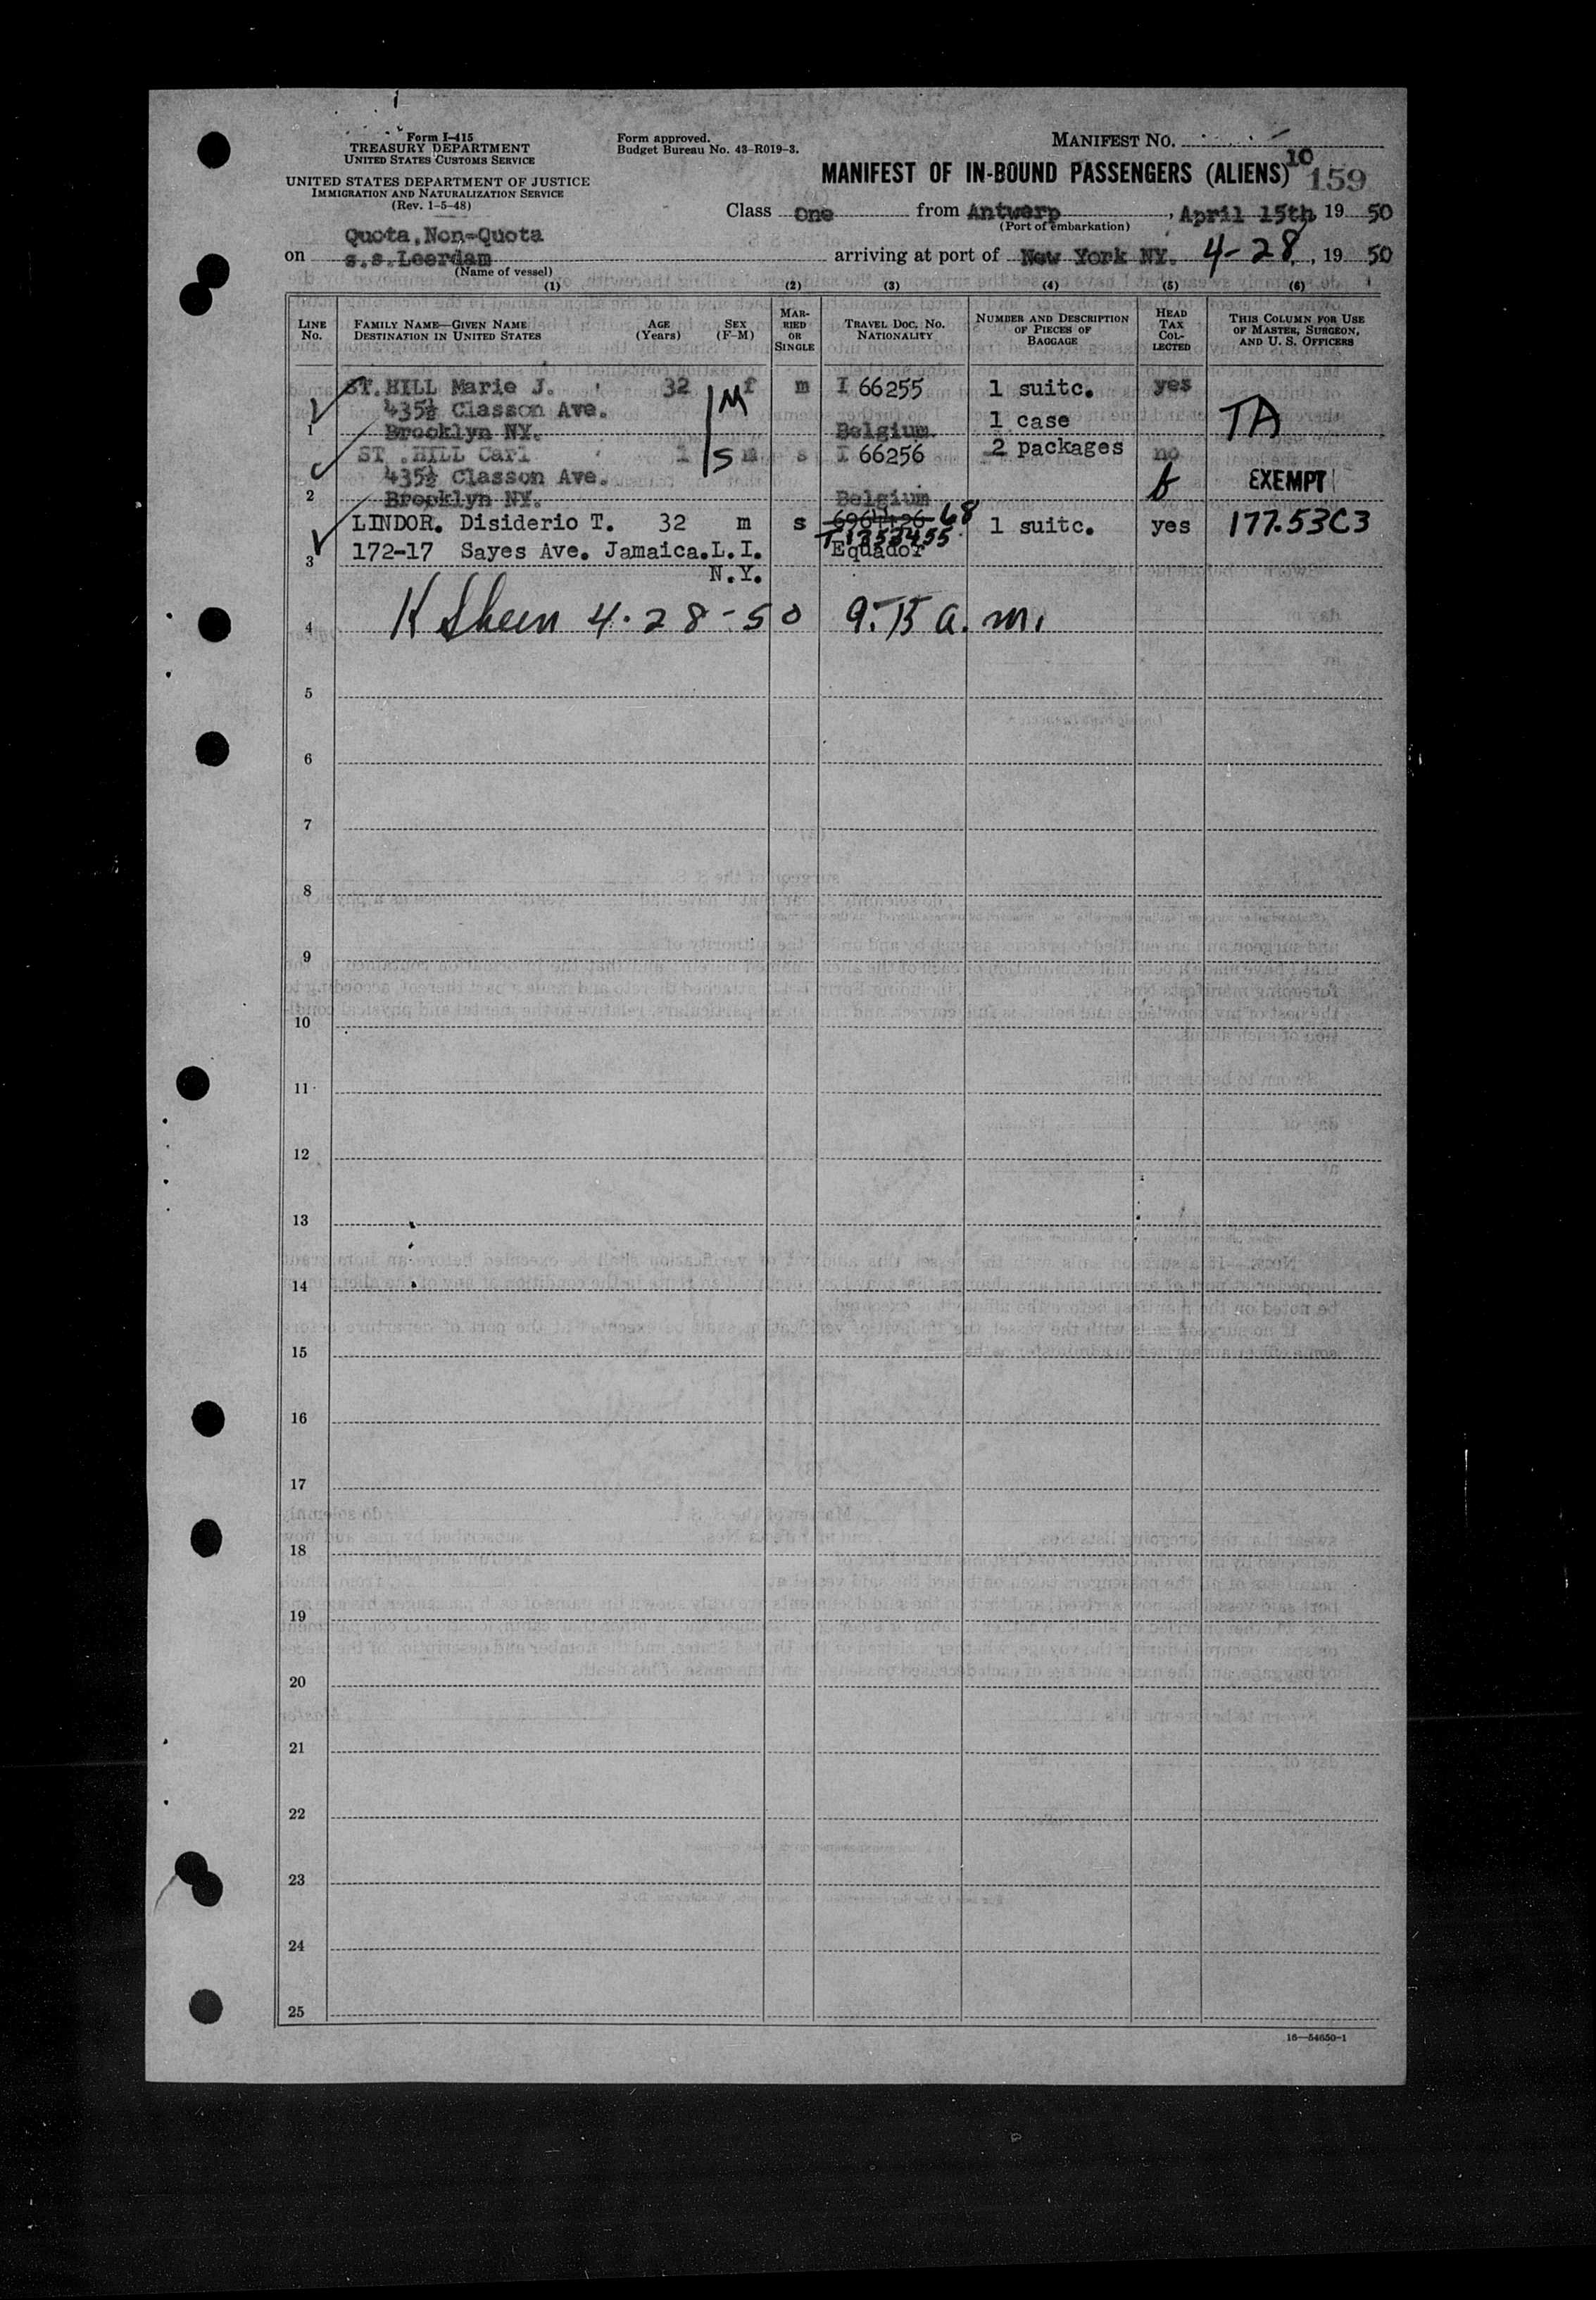 Form I-415
TREASURY DEPARTMENT
UNITED STATES CUSTOMS SERVICE
UNITED STATES DEPARTMENT OF JUSTICE
IMMIGRATION AND NATURALIZATION SERVICE
(Rev. 1-5-48)
Form approved.
Budget Bureau No. 43-R019-3.
MANIFEST NO.
10
MANIFEST OF IN-BOUND PASSENGERS (ALIENS) 159
Class One from Antwerp, April 15th, 19 50
(Port of embarkation)
Quota, Non-Quota
on s.s. Leerdam arriving at port of New York NY. 4-28, 19 50
(Name of vessel)
(1) (2) (3) (4) (5) (6)
LINE No. FAMILY NAME—GIVEN NAME DESTINATION IN UNITED STATES AGE (Years) SEX (F-M) MARRIED OR SINGLE TRAVEL DOC. NO. NATIONALITY NUMBER AND DESCRIPTION OF PIECES OF BAGGAGE HEAD TAX COLLECTED THIS COLUMN FOR USE OF MASTER, SURGEON, AND U. S. OFFICERS
ST. HILL Marie J. 32 f m I 66255 1 suitc. yes
435½ Classon Ave. M 1 case TA
1 Brooklyn NY. Belgium
ST. HILL Carl 1 S m s I 66256 2 packages no
435½ Classon Ave. EXEMPT
2 Brooklyn NY. Belgium
LINDOR. Disiderio T. 32 m s 68 1 suitc. yes 177.53C3
T-1353455
3 172-17 Sayes Ave. Jamaica.L.I. Equador
N.Y.
4 4-28-50 9.15 a.m.
5
6
7
8
9
10
11
12
13
14
15
16
17
18
19
20
21
22
23
24
25
16—54650-1